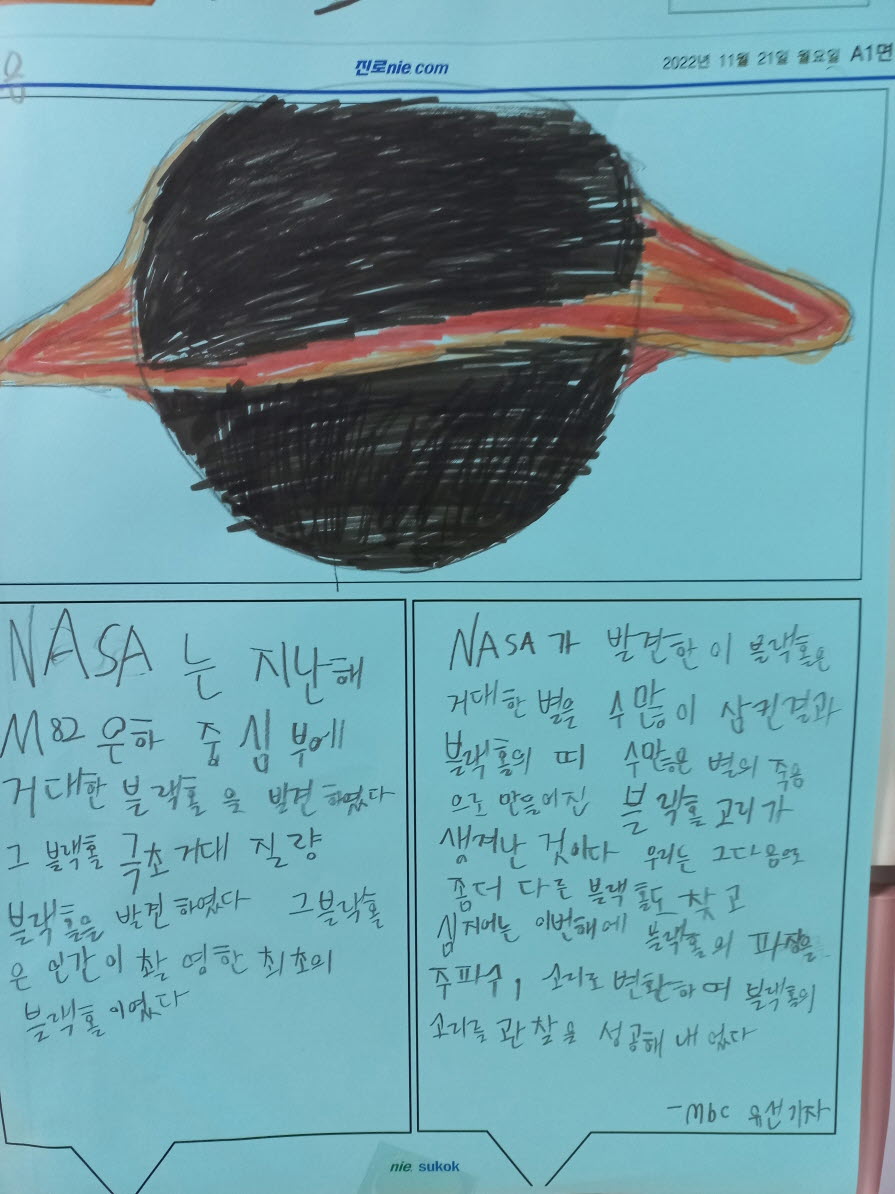 진로nie com
2022년 11월 21일 월요일 A1면
NASA 는 지난해
M82 은하 중심부에
거대한 블랙홀을 발견하였다
그 블랙홀 극초거대 질량
블랙홀을 발견하였다 그블랙홀
은 인간이 촬영한 최초의
블랙홀이였다
NASA가 발견한 이 블랙홀은
거대한 별을 수많이 삼킨결과
블랙홀의 띠 수많은 별의 죽음
으로 만들어진 블랙홀 고리가
생겨난 것이다 우리는 그다음으로
좀더 다른 블랙홀도 찾고
심지어는 이번해에 블랙홀의 파장을
주파수, 소리로 변환하며 블랙홀의
소리를 관찰을 성공해 내었다
-Mbc 유선기자
nie. sukok